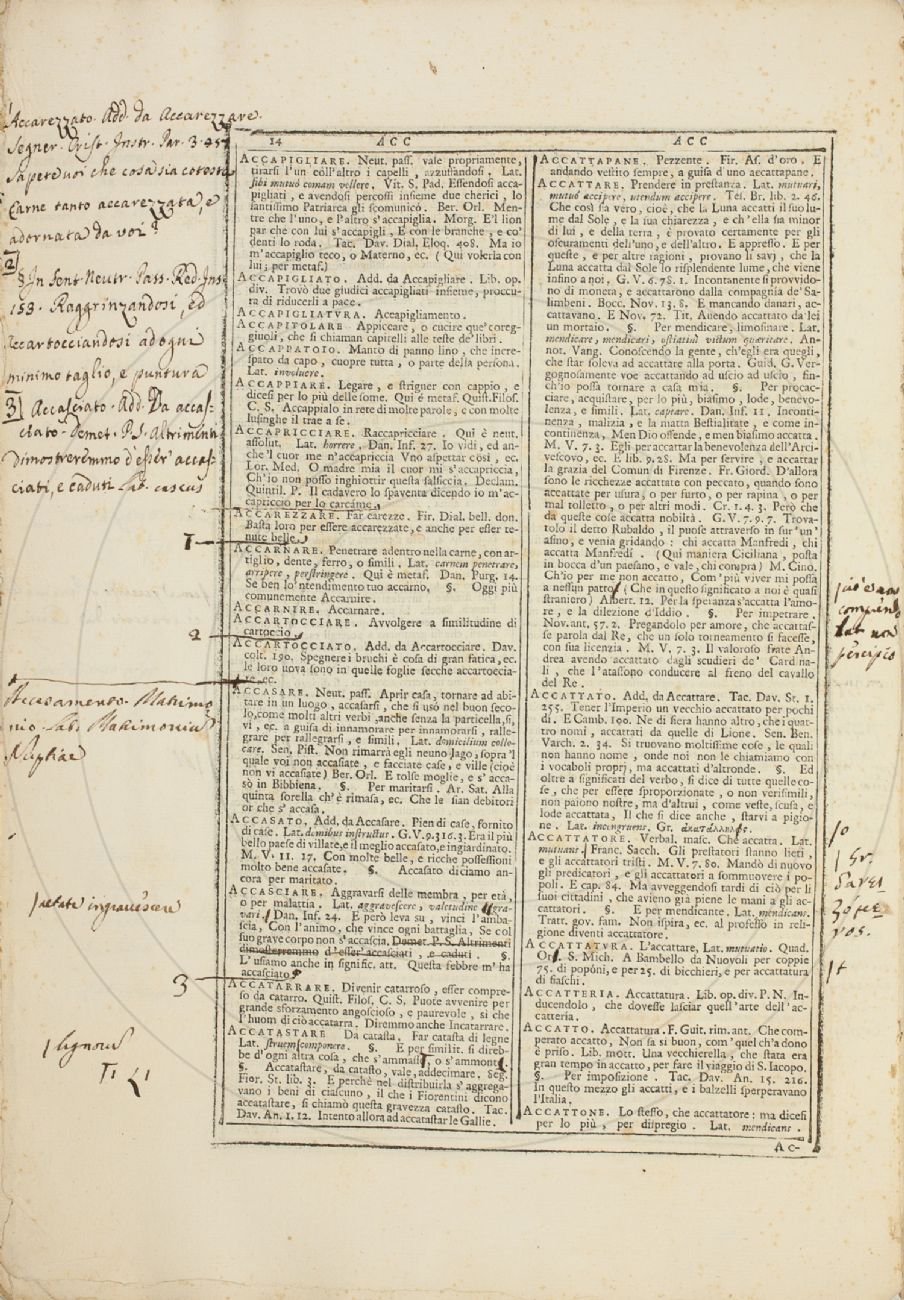 Accarezzato. Add. da Accarezzare.
Segner. Crist. Instr. Par. 3.
Sapete voi che cosa sia cotesta
Carne tanto accarezzata, e
adornata da voi?
2
§. In Sent. Neutr. Pass. Red. Ins.
153. Raggrinzandosi, ed
accartocciandosi ad ogni
minimo taglio, e puntura
3 Accasciato. Add. Da accas-
ciato. Demet. P.S. Altrimenti
dimostreremmo d'esser' accas-
ciati, e caduti. Lat.
1
2
Accasamento. Matrimo
nio. Lat. Matrimonium
Nuptiae
aetate ingravescere
3
lignorum
14 ACC
ACCAPIGLIARE. Neut. pass. vale propriamente,
tirarsi l'un coll'altro i capelli, azzuffandosi. Lat.
sibi mutuò comam vellere. Vit. S. Pad. Essendosi acca-
pigliati, e avendosi percossi insieme due cherici, lo
santissimo Patriarca gli scomunicò. Ber. Orl. Men-
tre che l'uno, e l'altro s'accapiglia. Morg. E'l lion
par che con lui s'accapigli, E con le branche, e co'
denti lo roda. Tac. Dav. Dial. Eloq. 408. Ma io
m'accapiglio teco, o Materno, ec. (Qui volerla con
lui; per metaf.)
ACCAPIGLIATO. Add. da Accapigliare. Lib. op.
div. Trovò due giudici accapigliati insieme, proccu-
ra di riducerli a pace.
ACCAPIGLIATVRA. Accapigliamento.
ACCAPITOLARE. Appiccare, o cucire que' coreg-
giuoli, che si chiaman capitelli alle teste de' libri.
ACCAPPATOTO. Manto di panno lino, che incre-
spato da capo, cuopre tutta, o parte della persona.
Lat. involucre.
ACCAPPIARE. Legare, e strigner con cappio, e
dicesi per lo più delle some. Qui è metaf. Quist. Filos.
C. S. Accappialo in rete di molte parole, e con molte
lusinghe il trae a se.
ACCAPRICCIARE. Raccapricciare. Qui è neut.
assolut. Lat. horrere. Dan. Inf. 27. Io vidi, ed an-
che 'l cuor me n'accapriccia Vno aspettar così, ec.
Lor. Med. O madre mia il cuor mi s'accapriccia,
Ch'io non posso inghiottir questa salsiccia. Declam.
Quintil. P. Il cadavero lo spaventa dicendo io m'ac-
capriccio per lo carcame.
ACCAREZZARE. Far carezze. Fir. Dial. bell. don.
Basta loro per essere accarezzate, e anche per esser te-
nute belle.
ACCARNARE. Penetrare adentro nella carne, con ar-
tiglio, dente, ferro, o simili. Lat. carnem penetrare,
arripere, perstringere. Qui è metaf. Dan. Purg. 14.
Se ben lo 'ntendimento tuo accarno. §. Oggi più
comunemente Accarnire.
ACCARNIRE. Accarnare.
ACCARTOCCIARE. Avvolgere a similitudine di
cartoccio.
ACCARTOCCIATO. Add. da Accartocciare. Dav.
colt. 190. Spegnere i bruchi è cosa di gran fatica, ec.
le loro uova sono in quelle foglie secche accartoccia-
te, ec.
ACCASARE. Neut. pass. Aprir casa, tornare ad abi-
tare in un luogo, accasarsi, che si usò nel buon seco-
lo, come molti altri verbi, anche senza la particella, si,
vi, ec. a guisa di innamorare per innamorarsi, ralle-
grare per rallegrarsi, e simili. Lat. domicilium collo-
care. Sen. Pist. Non rimarrà egli neuno Iago, sopra 'l
quale voi non accasiate, e facciate case, e ville (cioè
non vi accasiate) Ber. Orl. E tolse moglie, e s'acca-
sò in Bibbiena. §. Per maritarsi. Ar. Sat. Alla
quinta sorella ch'è rimasa, ec. Che le sian debitori
or che s'accasa.
ACCASATO. Add. da Accasare. Pien di case, fornito
di case. Lat. domibus instructus. G. V. 9. 316. 3. Era il più
bello paese di villate, e il meglio accasato, e ingiardinato.
M. V. 11. 17. Con molte belle, e ricche possessioni
molto bene accasate. §. Accasato diciamo an-
cora per maritato.
ACCASCIARE. Aggravarsi delle membra, per età,
o per malattia. Lat. aggravescere, valetudine gra-
vari. Dan. Inf. 24. E però leva su, vinci l'amba-
scia, Con l'animo, che vince ogni battaglia, Se col
suo grave corpo non s'accascia. Demet. P. S. Altrimenti
dimosterremmo d'esser' accasciati, e caduti. §.
L'usiamo anche in signific. att. Questa febbre m'ha
accasciato.
ACCATARRARE. Divenir catarroso, esser compre-
so da catarro. Quist. Filos. C. S. Puote avvenire per
grande sforzamento angoscioso, e paurevole, sì che
l'huom di ciò accatarra. Diremmo anche Incatarrare.
ACCATASTARE. Da catasta. Far catasta di legne
Lat. struem componere. §. E per similit. si direb-
be d'ogni altra cosa, che s'ammassi, o s'ammonti.
§. Accatastare, da catasto, vale, addecimare. Seg.
Fior. St. lib. 3. E perchè nel distribuirla s'aggrega-
vano i beni di ciascuno, il che i Fiorentini dicono
accatastare, si chiamò questa gravezza catasto. Tac.
Dav. An. 1. 12. Intento allora ad accatastar le Gallie.
ACC
ACCATTAPANE. Pezzente. Fir. As. d'oro. E
andando vestito sempre, a guisa d'uno accattapane.
ACCATTARE. Prendere in prestanza. Lat. mutuari,
mutuò accipere, utendum accipere. Tes. Br. lib. 2. 46.
Che così sia vero, cioè, che la Luna accatti il suo lu-
me dal Sole, e la sua chiarezza, e ch'ella sia minor
di lui, e della terra, è provato certamente per gli
oscuramenti dell'uno, e dell'altro. E appresso. E per
queste, e per altre ragioni, provano li savj, che la
Luna accatta dal Sole lo risplendente lume, che viene
infino a noi. G. V. 6. 78. 1. Incontanente si provvido-
no di moneta, e accattarono dalla compagnia de' Sa-
limbeni. Bocc. Nov. 13. 8. E mancando danari, ac-
cattavano. E Nov. 72. Tit. Auendo accattato da lei
un mortaio. §. Per mendicare, limosinare. Lat.
mendicare, mendicari, ostiatim victum quaeritare. An-
not. Vang. Conoscendo la gente, ch'egli era quegli,
che star soleva ad accattare alla porta. Guid. G. Ver-
gognosamente voe accattando ad uscio ad uscio, fin-
ch'io possa tornare a casa mia. §. Per procac-
ciare, acquistare, per lo più, biasimo, lode, benevo-
lenza, e simili. Lat. captare. Dan. Inf. 11. Inconti-
nenza, malizia, e la matta Bestialitate, e come in-
continenza, Men Dio offende, e men biasimo accatta.
M. V. 7. 3. Egli per accattar la benevolenza dell'Arci-
vescovo, ec. E lib. 9. 28. Ma per servire, e accattar
la grazia del Comun di Firenze. Fr. Giord. D'allora
sono le ricchezze accattate con peccato, quando sono
accattate per usura, o per furto, o per rapina, o per
mal tolletto, o per altri modi. Cr. 1. 4. 3. Però che
da queste cose accatta nobiltà. G. V. 7. 9. 7. Trova-
tolo il detto Rubaldo, il puose attraverso in sur 'un'
asino, e venia gridando: chi accatta Manfredi, chi
accatta Manfredi. (Qui maniera Ciciliana, posta
in bocca d'un paesano, e vale, chi compra) M. Cino.
Ch'io per me non accatto, Com' più viver mi possa
a nessun patto. (Che in questo significato a noi è quasi
straniero) Albert. 12. Per la speranza s'accatta l'amo-
re, e la dilezion d'Iddio. §. Per impetrare.
Nov. ant. 57. 2. Pregandolo per amore, che accattas-
se parola dal Re, che un solo torneamento si facesse,
con sua licenzia. M. V. 7. 3. Il valoroso frate An-
drea avendo accattato dagli scudieri de' Cardina-
li, che l'atassono conducere al fieno del cavallo
del Re.
ACCATTATO. Add. da Accattare. Tac. Dav. St. 1.
255. Tener l'Imperio un vecchio accattato per pochi
dì. E Camb. 100. Ne di fiera hanno altro, che i quat-
tro nomi, accattati da quelle di Lione. Sen. Ben.
Varch. 2. 34. Si truovano moltissime cose, le quali
non hanno nome, onde noi non le chiamiamo con
i vocaboli proprj, ma accattati d'altronde. §. Ed
oltre a significati del verbo, si dice di tutte quelle co-
se, che per essere sproporzionate, o non verisimili,
non paiono nostre, ma d'altrui, come veste, scusa, e
lode accattata, Il che si dice anche, starvi a pigio-
ne. Lat. incongruens. Gr.
ACCATTATORE. Verbal. masc. Che accatta. Lat.
mutuans. Franc. Sacch. Gli prestatori stanno lieti,
e gli accattatori tristi. M. V. 7. 80. Mandò di nuovo
gli predicatori, e gli accattatori a sommuovere i po-
poli. E cap. 84. Ma avveggendosi tardi di ciò per li
suoi cittadini, che avieno già piene le mani a gli ac-
cattatori. §. E per mendicante. Lat. mendicans.
Tratt. gov. fam. Non ispira, ec. al professo in reli-
gione diventi accattatore.
ACCATTATVRA. L'accattare, Lat. mutuatio. Quad.
Or. S. Mich. A Bambello da Nuovoli per coppie
75. di popóni, e per 25. di bicchieri, e per accattatura
di fiaschi.
ACCATTERIA. Accattatura. Lib. op. div. P. N. In-
ducendolo, che dovesse lasciar quell'arte dell'ac-
catteria.
ACCATTO. Accattatura. F. Guit. rim. ant. Che com-
perato accatto, Non sa sì buon, com'quel ch'a dono
è priso. Lib. mott. Una vecchierella, che stata era
gran tempo in accatto, per fare il viaggio di S. Iacopo.
§. Per imposizione. Tac. Dav. An. 15. 216.
In questo mezzo gli accatti, e i balzelli sperperavano
l'Italia.
ACCATTONE. Lo stesso, che accattatore: ma dicesi
per lo più, per dispregio. Lat. mendicans.
Ac-